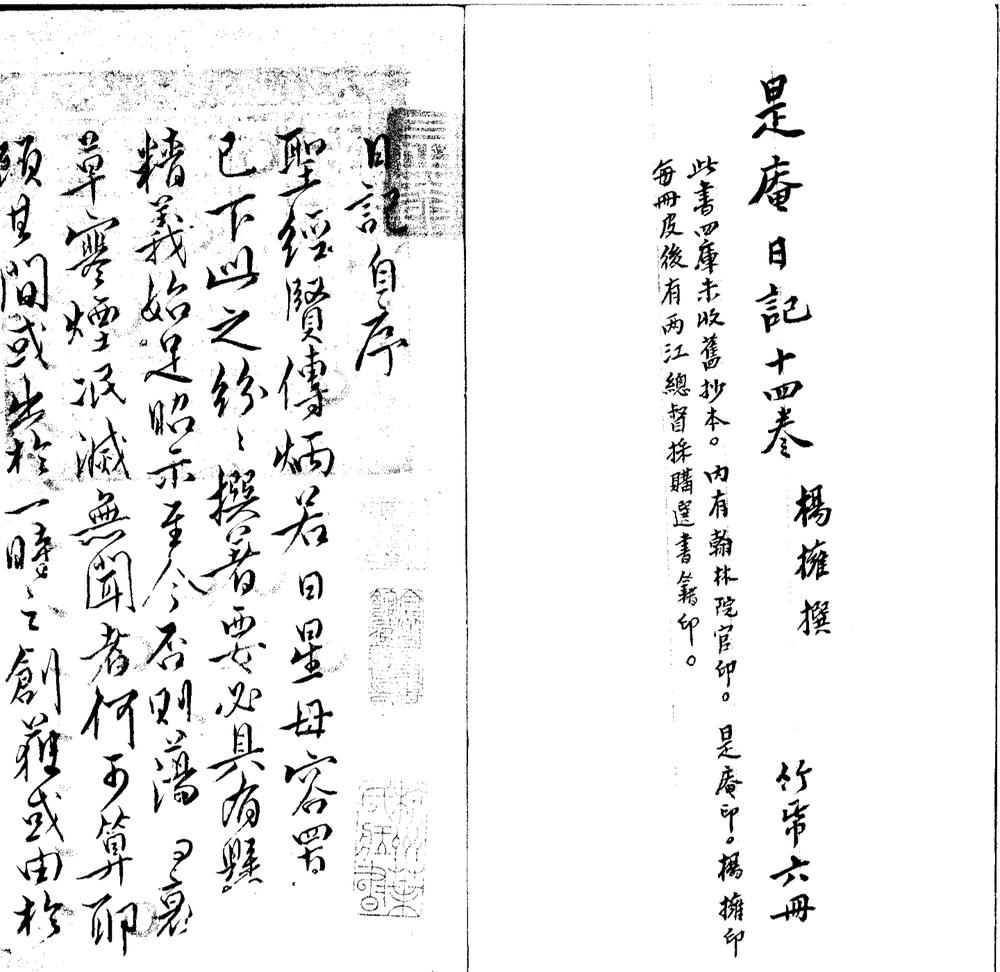 是庵日記十四卷 楊擁撰 竹帋六冊
此書四庫未收舊抄本。內有翰林院官印。是庵印。楊擁印
每冊皮後有两江總督採購選書籍印。
日記自序
聖經賢傳炳若日星毋容置
已下此之紛紛撰著要必具有懸
精義始足昭示至今否則蕩
草寒煙泯滅無聞者何可算耶
顧其間或出於一時之創獲或由於